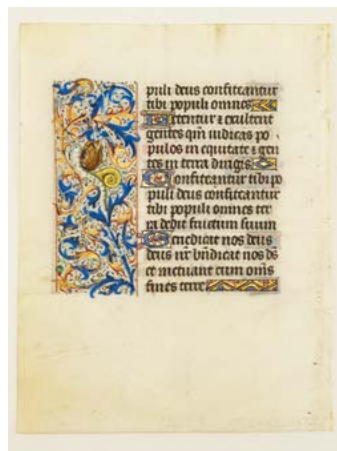 puli deus confiteantur
tibi populi omnes
Letentur ⁊ exultent
gentes qm̄ iudicas po
pulos in equitate ⁊ gen
tes in terra dirigis
Confiteantur tibi po
puli deus confiteantur
tibi populi omnes ter
ra dedit fructum suum
Benedicat nos deus
deus nr̄ bn̄dicat nos ds̄
et metuant eum om̄s
fines terre